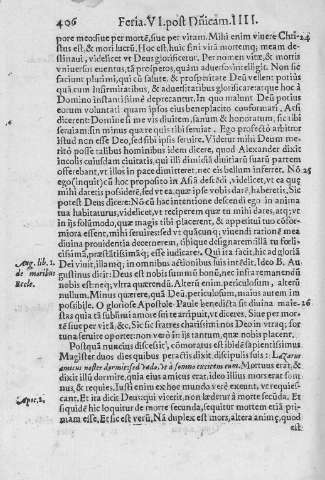 406 Feria. VI. post Dñicam. IIII.
pore meo siue per mortē, siue per vitam. Mihi enim viuere Chri- 24
stus est, & mori lucrū. Hoc est. huic fini vitā mortemq; meam de-
stinaui, videlicet vt Deus glorificetur. Per nomen vitæ, & mortis
vniuersus euentus, tā prosperos, quàm aduersos intelligit. Non sic
faciunt plurimi, qui cū salute, & prosperitate Deū velint: potiùs
quā cum infirmitatibus, & aduersitatibus glorificare: atque hoc à
Domino instantissimè deprecantur. In quo malunt Deū potius
eorum voluntati quam ipsos eius beneplacito conformari. Ac si
dicerent: Domine si me vis diuitem, sanum & honoratum, sic tibi
seruiam: sin minus quære quis tibi seruiat. Ego profectò arbitror
istud non esse Deo, sed sibi ipsis seruire. Videtur mihi Deum me-
ritò posse talibus hominibus idem dicere, quod Alexander dixit
incolis cuiusdam ciuitatis, qui illi dimidiā diuitiarū suarū partem
offerebant, vt illos in pace dimitteret, nec eis bellum inferret. Nō 25
ego (inquit) cū hoc proposito in Asiā descēdi, videlicet, vt ea quæ
mihi daretis possiderē, sed vt ea, quæ ipse vobis darē, haberetis, Sic
potest Deus dicere: Nō cū hac intentione descendi ego in anima
tua habitaturus, videlicet, vt reciperem quæ tu mihi dares, atq; vt
in ijs solùmodo, quæ magis tibi placerent, & appetitui tuo cōfor-
miora essent, mihi seruires: sed vt quācūq; viuendi rationē mea
diuina prouidentia decernerem, tibique designarem illā tu foeli-
cissimā, præstātissimāq; esse iudicares. Qui ita facit, hic ad gloriā
Aug. lib. 1. Dei viuit, illamq; in omnibus actionibus suis intēdit. Ideo B. Au-
de moribus gustinus dixit: Deus est nobis summū bonū, nec infra remanendū
Eccle. nobis est: neq; vltra quærendū. Alterū enim periculosum, alterū
nullum. Minus quærere, quā Deū, periculosum, maius autem im-
possibile. O gloriose Apostole Paule benedicta sit diuina maie- 26
stas quia tā sublimi amore sui te arripuit, vt diceres. Siue per mor-
tē siue per vitā, &c. Sic sic fratres charissimi nos Deo in vtraq; for-
tuna seruire oportet: non verò in ijs tantum, quæ nobis placent.
Postquā nuncius discessit, cōmoratus est ibidē sapientissimus
Magister duos dies quibus peractis dixit discipulis suis: Lazarus
amicus noster dormit: sed vado, vt à somno excitem eum. Mortuus erat, &
dixit illū dormire, quia eius amicus erat. ideo illius mors erat som-
nus, & requies. Iusti enim ex hoc mundo verè exeunt, vt requies-
Apoc. 2. cant. Et ita dicit Deus: qui vicerit, non lædetur à morte secūda. Et
si quidē hîc loquitur de morte secunda, sequitur mortem etiā pri-
mam esse. Et sic est verū, Nā duplex est mors, altera animę, quod
est